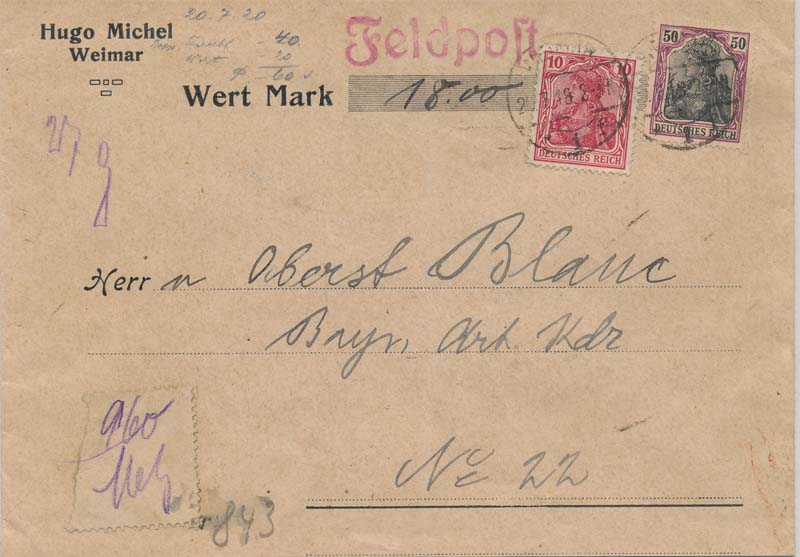 Hugo Michel
Weimar
20.7.20
- 40.
- 20
- 60
Feldpost
Wert Mark 18.00
10 10
DEUTSCHES REICH
50 50
DEUTSCHES REICH
27 g
Herrn Oberst Blanc
Bayr. Art. Kdr
No 22
960
Metz
843